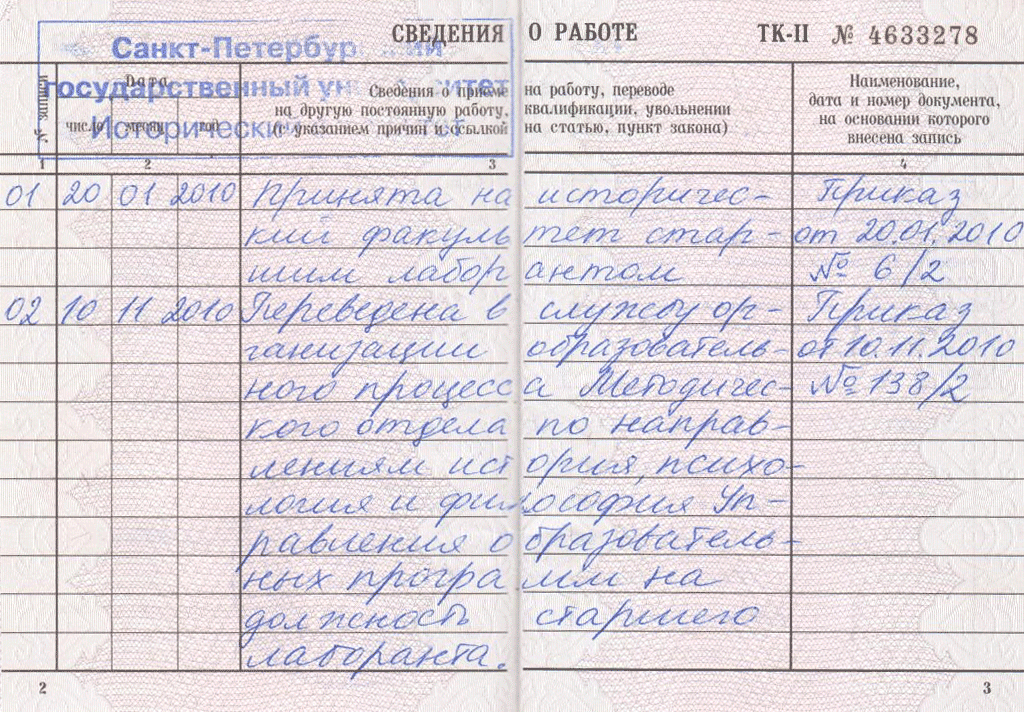 СВЕДЕНИЯ О РАБОТЕ ТК-II № 4633278
Санкт-Петербур
государственный
Исторический
№ записи
Дата
число месяц год
Сведения о приеме на работу, переводе
на другую постоянную работу, квалификации, увольнении
(с указанием причин и ссылкой на статью, пункт закона)
Наименование,
дата и номер документа,
на основании которого
внесена запись
1 2 3 4
01 20 01 2010 Принята на историчес- Приказ
кий факультет стар- от 20.01.2010
шим лаборантом № 6/2
02 10 11 2010 Переведена в службу ор- Приказ
ганизации образователь- от 10.11.2010
ного процесса Методичес- № 138/2
кого отдела по направ-
лениям история, психо-
логия и философия Уп-
равления образователь-
ных программ на
должность старшего
лаборанта.
2 3